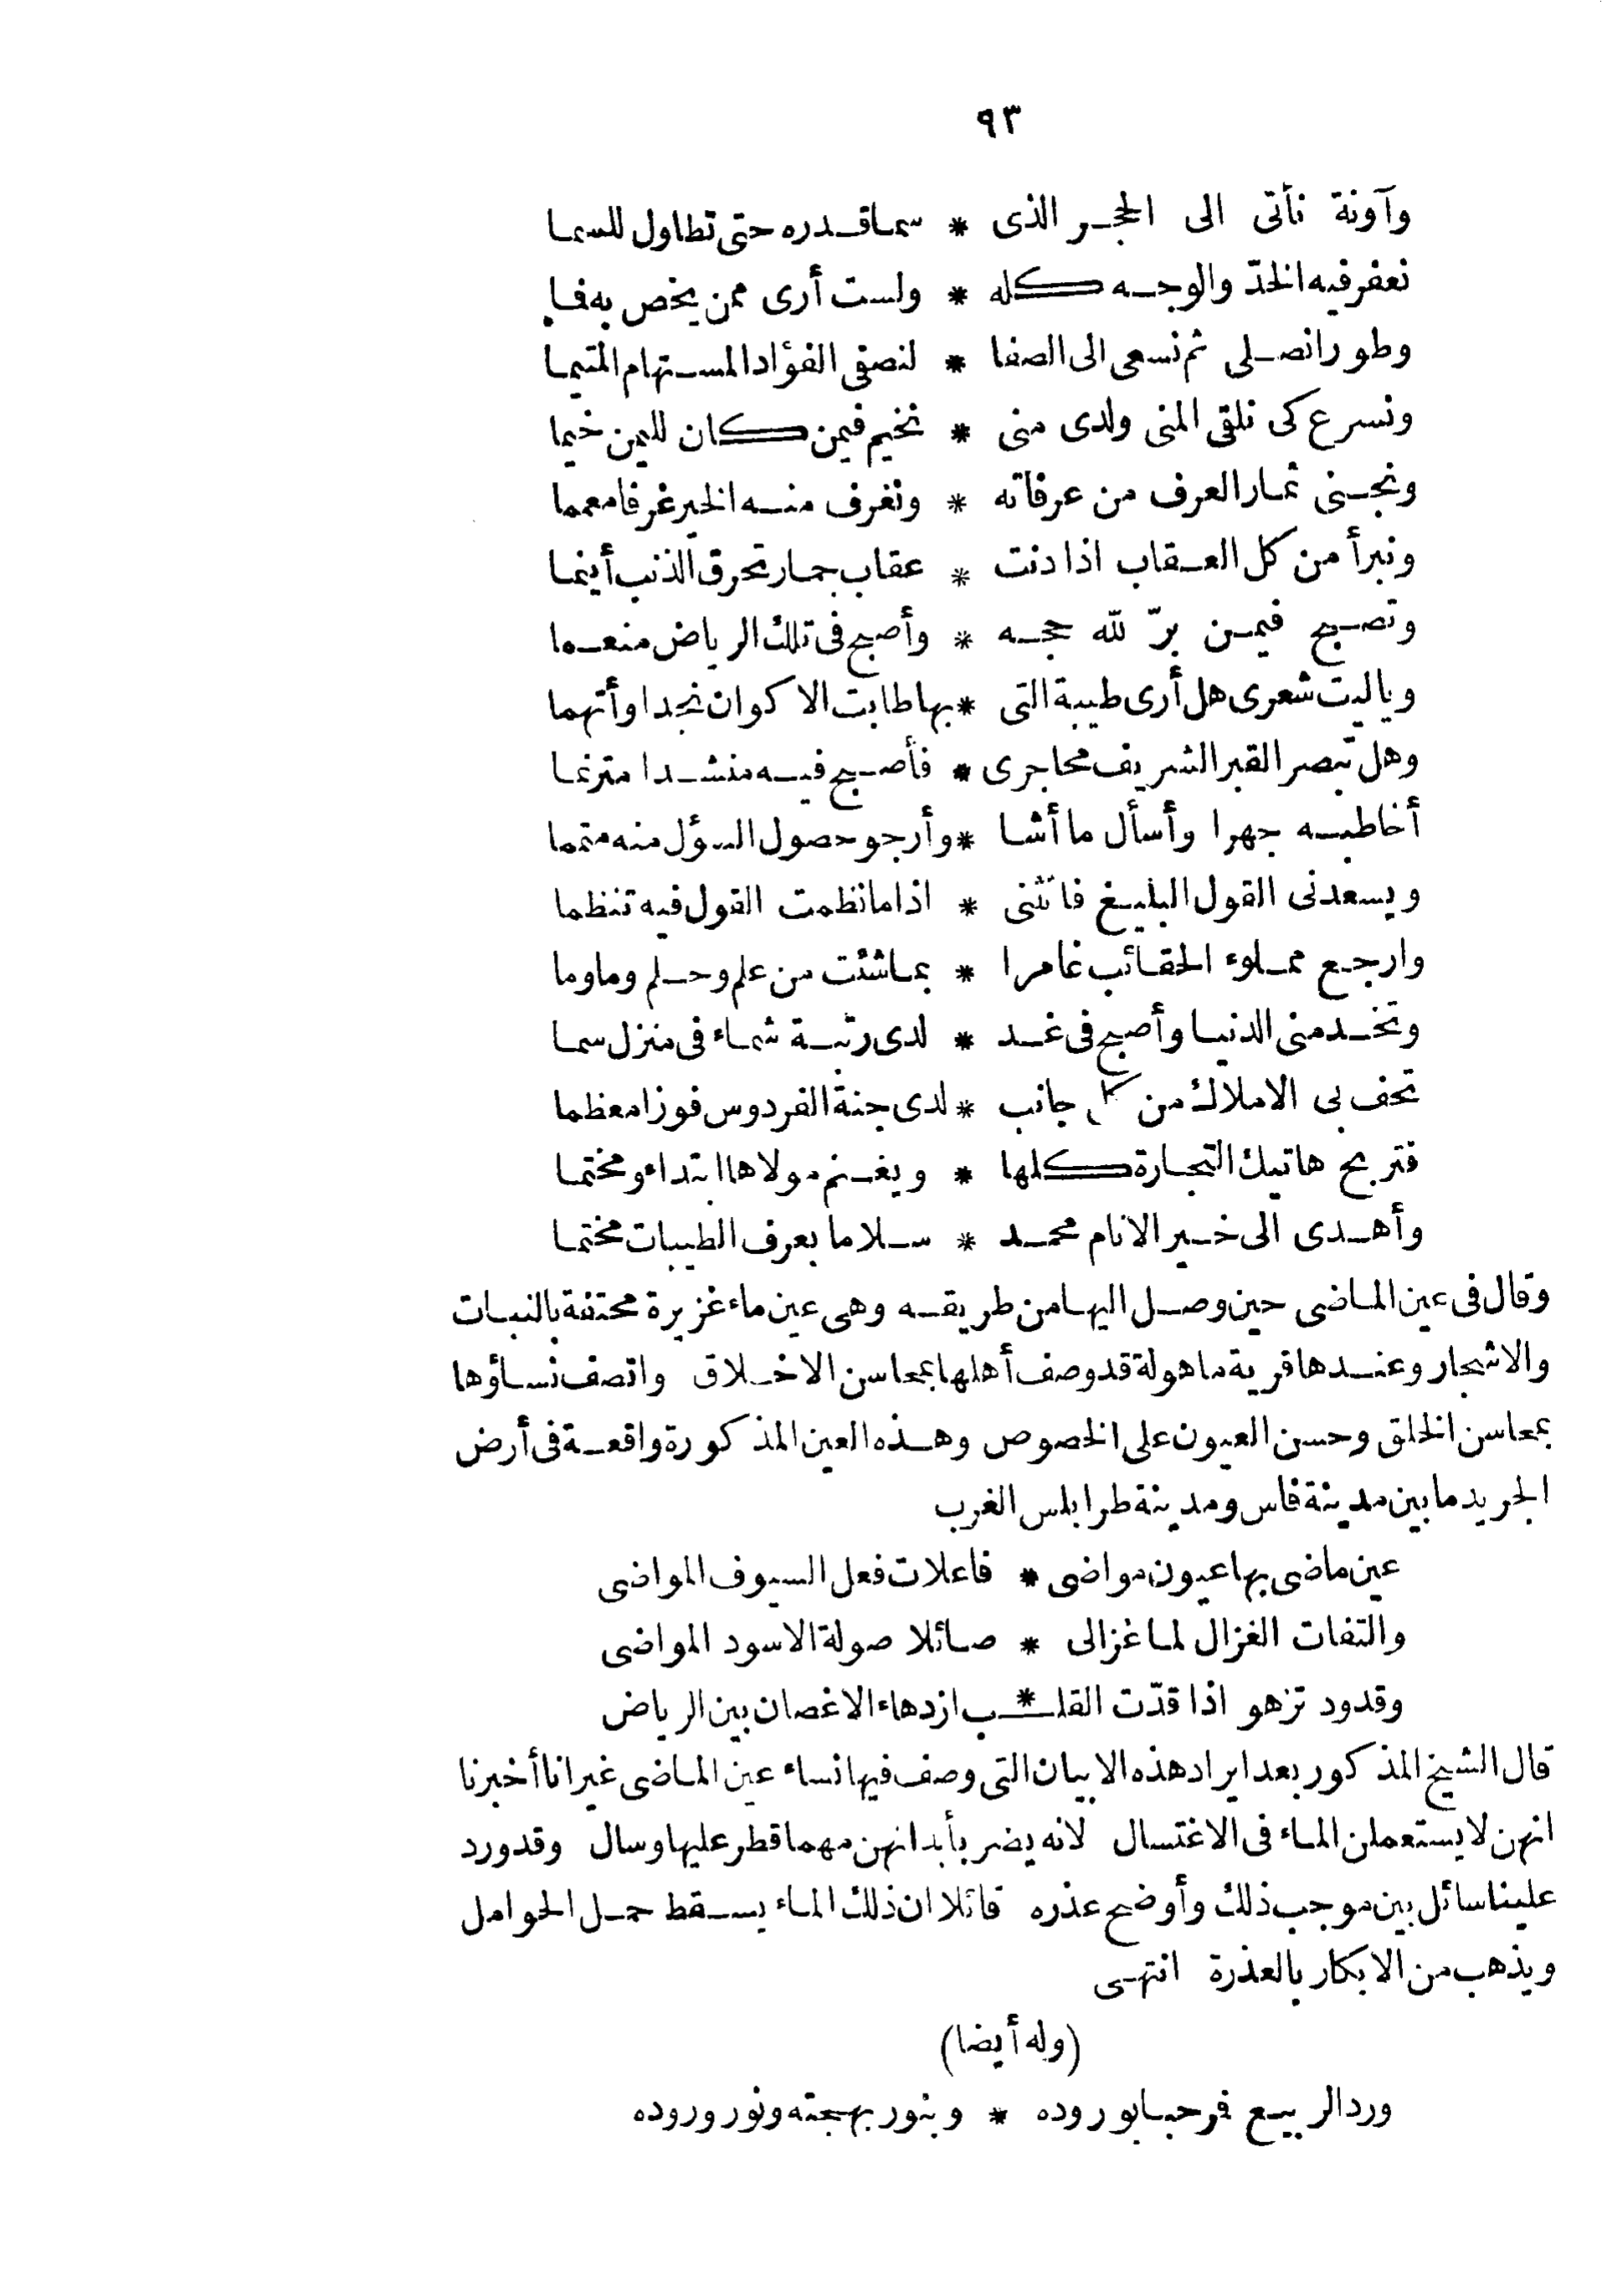 ٩٣
وآونة نأتى الى الحجر الذى * سما قدره حتى تطاول للسما
نعفر فيه الخدّ والوجه كله * ولست أرى ممن يخص به فما
وطورا نصلى ثم نسعى الى الصفا * لنصفى الفؤاد المستهام المتيما
ونسرع كى نلقى المنى ولدى منى * نخيم فيمن كان لليمن خيما
ونجنى ثمار العرف من عرفاته * ونغرف منه الخير غرفا معمما
ونبرأ من كل العقاب اذا دنت * عقاب جمار تحرق الذنب أينما
وتصبح فيمن برّ لله حجه * وأصبح فى تلك الرياض منعما
وياليت شعرى هل أرى طيبة التى * بها طابت الاكوان نجدا وأتهما
وهل تبصر القبر الشريف محاجرى * فأصبح فيه منشدا مترنما
أخاطبه جهرا وأسأل ما أشا * وأرجو حصول السؤل منه متمما
ويسعدنى القول البليغ فانثنى * اذا ما نظمت القول فيه تنظما
وارجع مملوء الحقائب غامرا * بما شئت من علم وحلم وما وما
وتخد منى الدنيا وأصبح فى غد * لدى رتبة شماء فى منزل سما
تحف بى الاملاك من كل جانب * لدى جنة الفردوس فوزا معظما
فتربح هاتيك التجارة كلها * ويغنم مولاها ابتداء ومختما
وأهدى الى خير الانام محمد * سلاما بعرف الطيبات مختما
وقال فى عين الماضى حين وصل اليها من طريقه وهى عين ماء غزيرة محتفة بالنبات
والاشجار وعندها قرية ماهولة قد وصف أهلها بمحاسن الاخلاق واتصف نساؤها
بمحاسن الخلق وحسن العيون على الخصوص وهذه العين المذكورة واقعة فى أرض
الجريد ما بين مدينة فاس ومدينة طرابلس الغرب
عين ماضى بها عيون مواضى * فاعلات فعل السيوف المواضى
والتفات الغزال لما غزالى * صائلا صولة الاسود المواضى
وقدود تزهو اذا قدّت القلـ * ـب ازدهاء الاغصان بين الرياض
قال الشيخ المذكور بعد ايراد هذه الابيات التى وصف فيها نساء عين الماضى غير انا أخبرنا
انهن لا يستعملن الماء فى الاغتسال لانه يضر بأبدانهن مهما قطر عليها وسال وقد ورد
علينا سائل بين موجب ذلك وأوضح عذره قائلا ان ذلك الماء يسقط حمل الحوامل
ويذهب من الابكار بالعذرة انتهى
(وله أيضا)
ورد الربيع فرحبا بوروده * وبنور بهجته ونور وروده